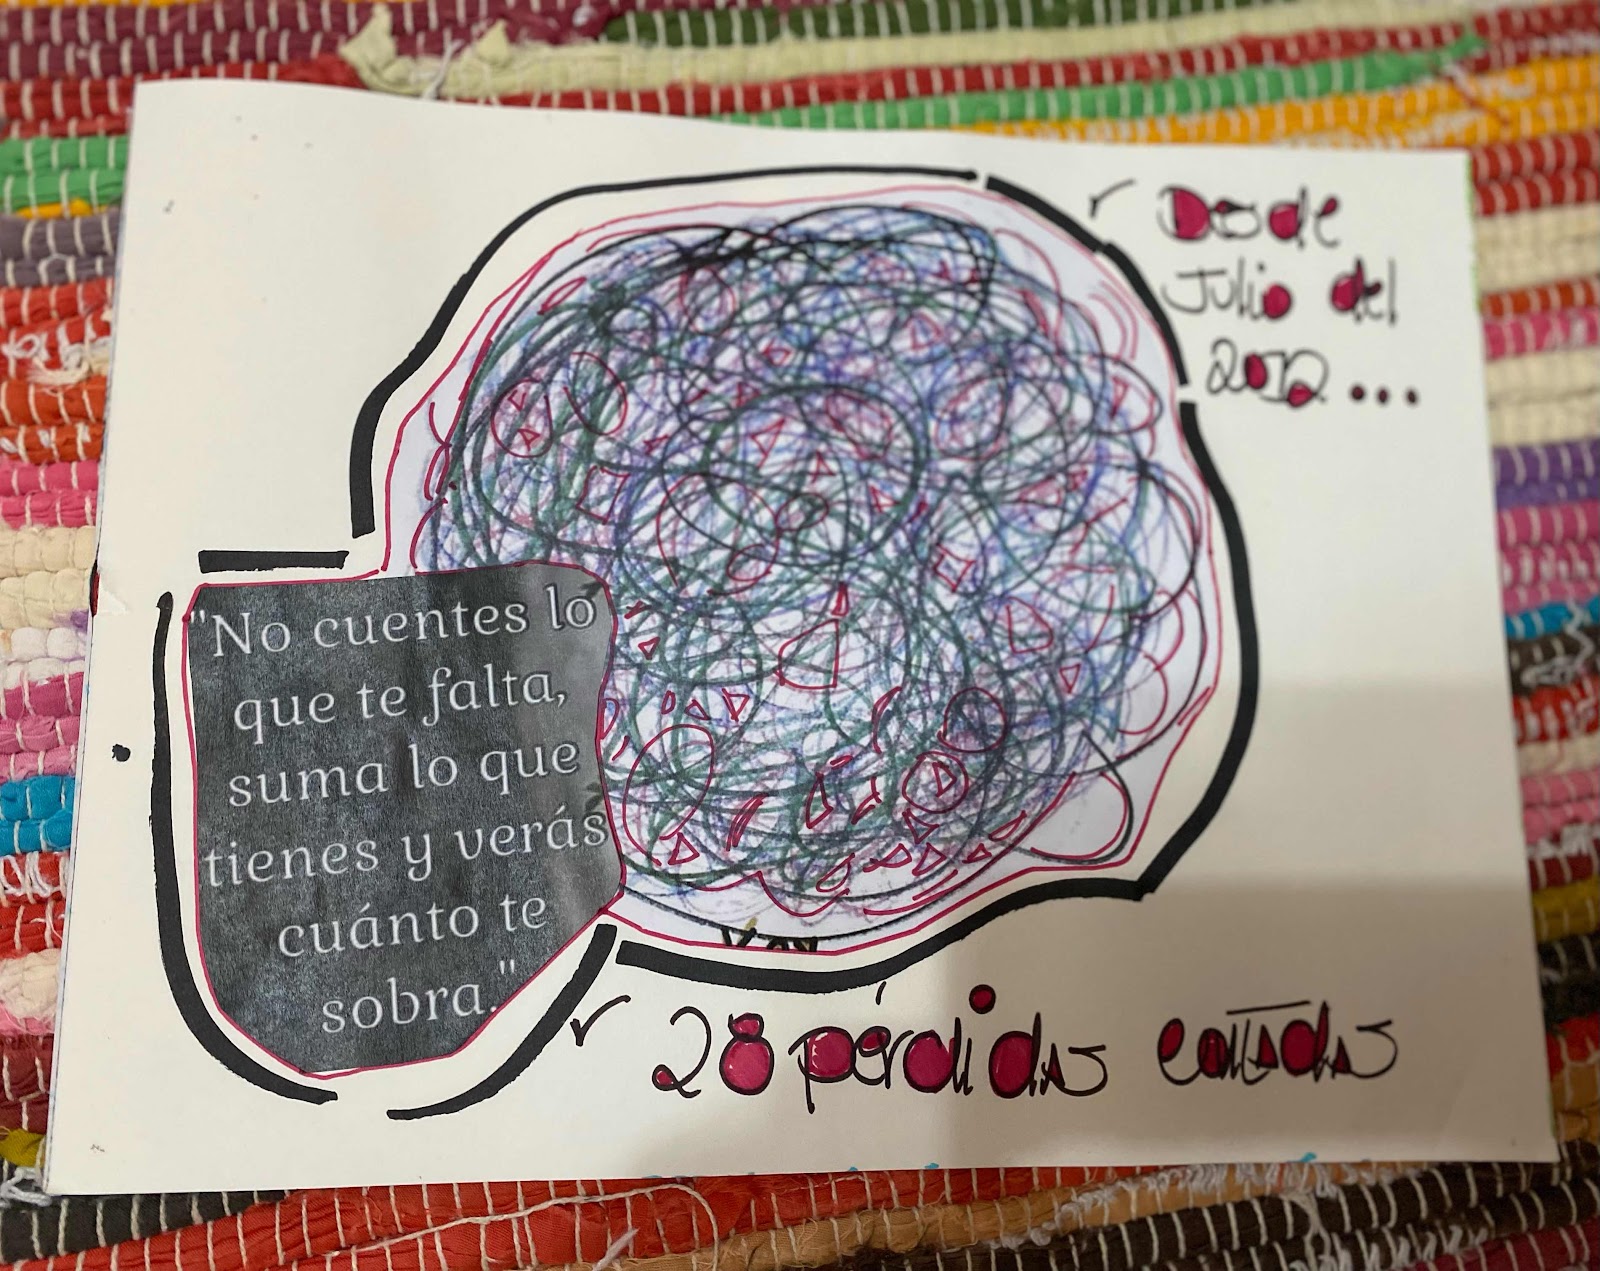 Desde
Julio del
2012...
"No cuentes lo
que te falta,
suma lo que
tienes y verás
cuánto te
sobra."
28 pérdidas contadas